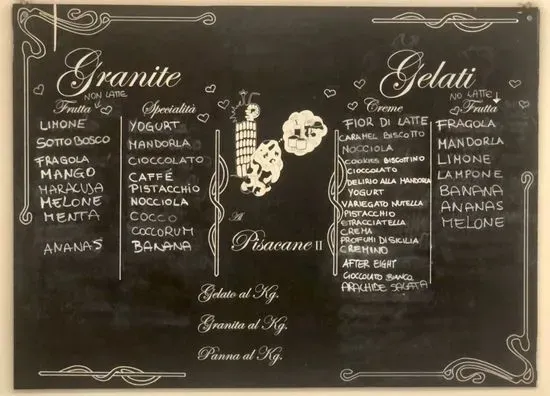 Granite
NON LATTE
Frutta
LIMONE
SOTTOBOSCO
FRAGOLA
MANGO
MARACUJA
MELONE
MENTA
ANANAS
Specialità
YOGURT
MANDORLA
CIOCCOLATO
CAFFÉ
PISTACCHIO
NOCCIOLA
COCCO
COCCORUM
BANANA
Al
Pisacane II
Gelato al Kg.
Granita al Kg.
Panna al Kg.
Gelati
Creme
FIOR DI LATTE
CARAMEL BISCOTTO
NOCCIOLA
COOKIES BISCOTTINO
CIOCCOLATO
DELIRIO ALLA MANDORLA
YOGURT
VARIEGATO NUTELLA
PISTACCHIO
STRACCIATELLA
CREMA
PROFUMI DI SICILIA
CREMINO
AFTER EIGHT
CIOCCOLATO BIANCO
ARACHIDE SALATA
NO LATTE
Frutta
FRAGOLA
MANDORLA
LIMONE
LAMPONE
BANANA
ANANAS
MELONE